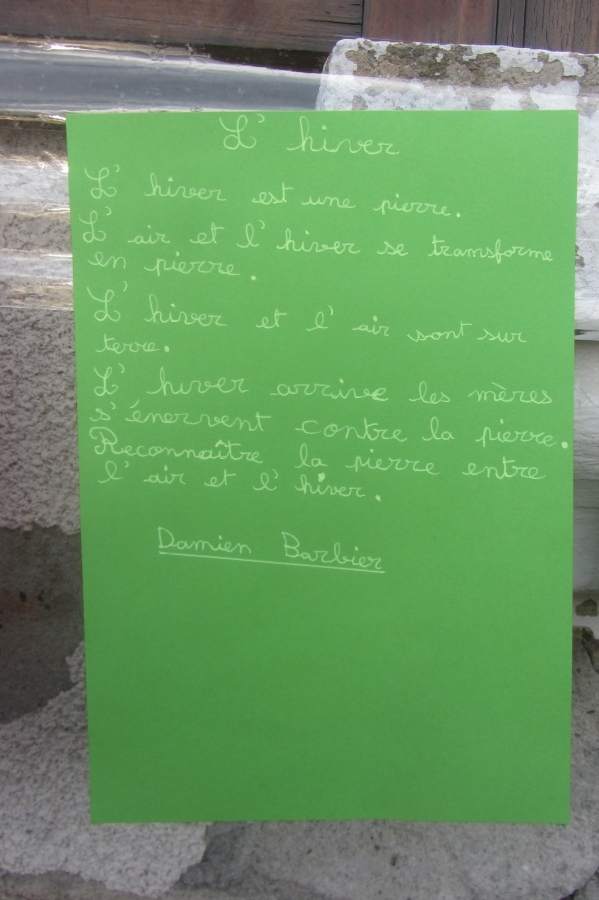 L' hiver
L' hiver est une pierre.
L' air et l' hiver se transforme
en pierre.
L' hiver et l' air sont sur
terre.
L' hiver arrive les mères
s'énervent contre la pierre.
Reconnaître la pierre entre
l' air et l' hiver.
Damien Barbier